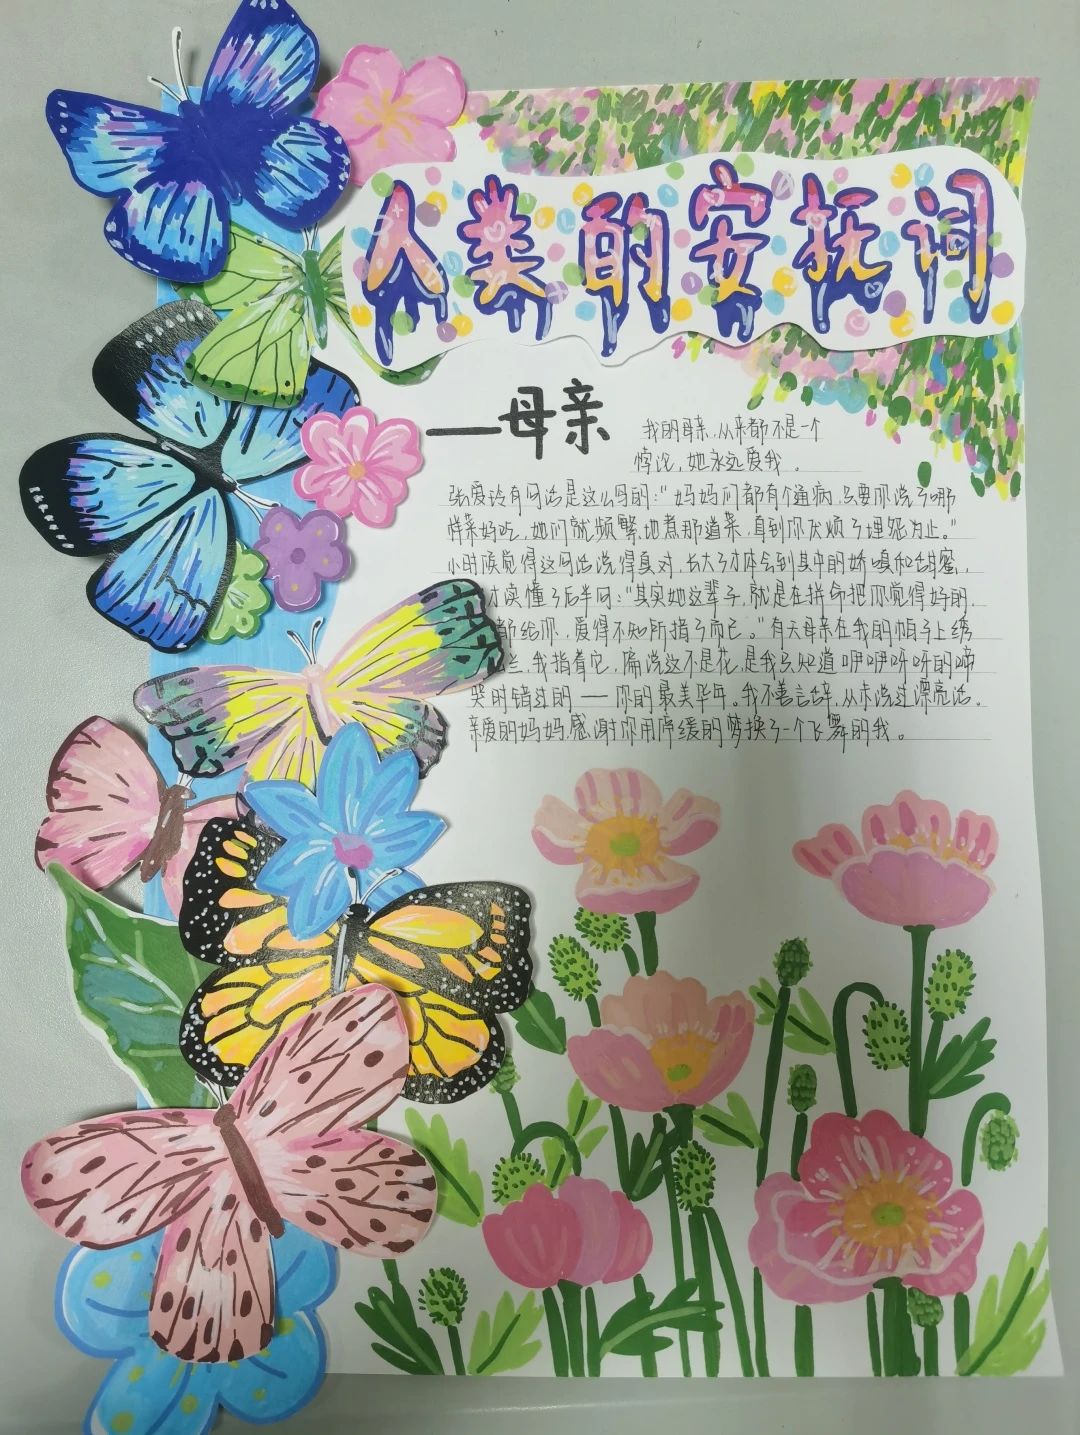 人类的安抚词
——母亲
我的母亲,从来都不是一个
悖论,她永远爱我。
张爱玲有句话是这么写的:“妈妈们都有个通病,只要你说了哪
样菜好吃,她们就频繁地煮那道菜,直到你厌烦了埋怨为止。”
小时候觉得这句话说得真对,长大了才体会到其中的娇嗔和甜蜜,
才读懂了后半句:“其实她这辈子,就是在拼命把你觉得好的,
都给你,爱得不知所措了而已。”有天母亲在我的帽子上绣
兰,我指着它,偏说这不是花,是我只知道咿咿呀呀的啼
哭时错过的——你的最美华年。我不善言辞,从未说过漂亮话。
亲爱的妈妈,感谢你用停缓的梦换了一个飞舞的我。